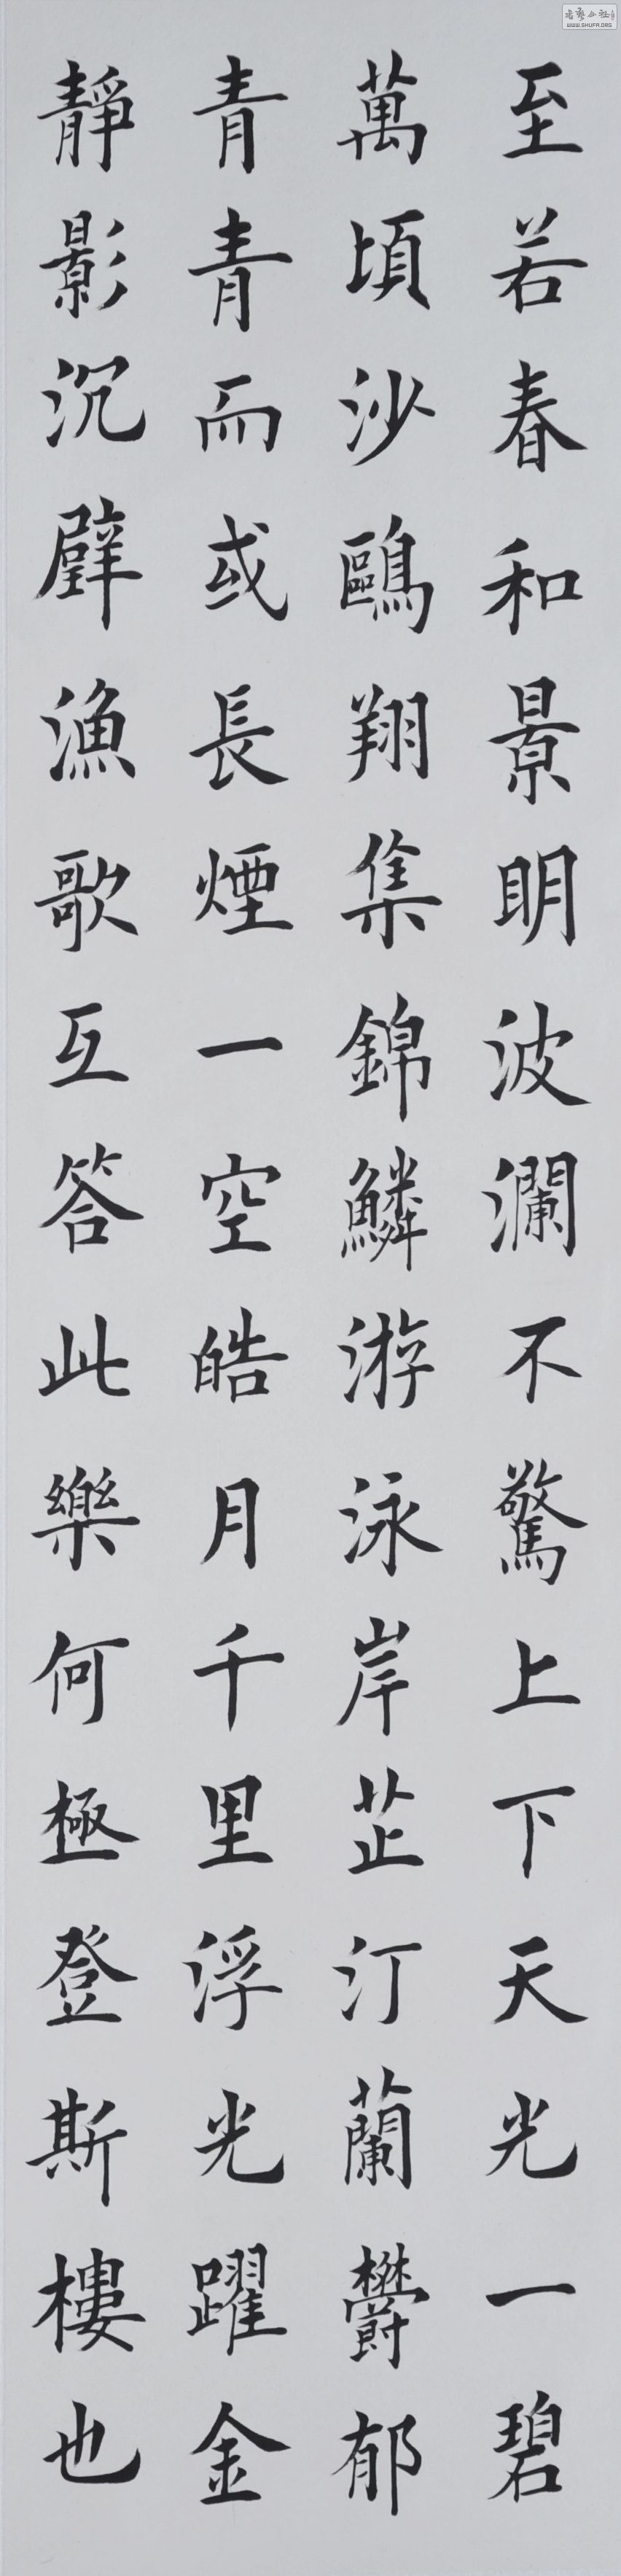 至若春和景明波瀾不驚上下天光一碧
萬頃沙鷗翔集錦鱗游泳岸芷汀蘭欝郁
青青而或長煙一空皓月千里浮光躍金
靜影沉璧漁歌互答此樂何極登斯樓也
WWW.SHUFA.ORG